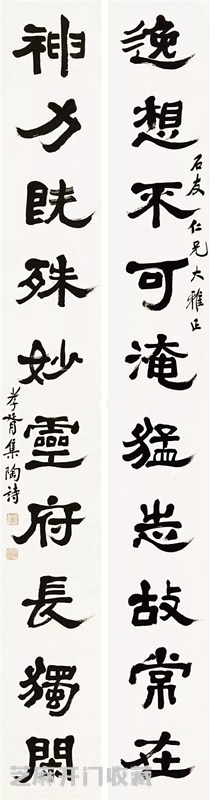 逸想不可淹猛志故常在
石友仁兄大雅正
神力既殊妙靈府長獨閑
孝胥集陶詩
芝麻开门收藏